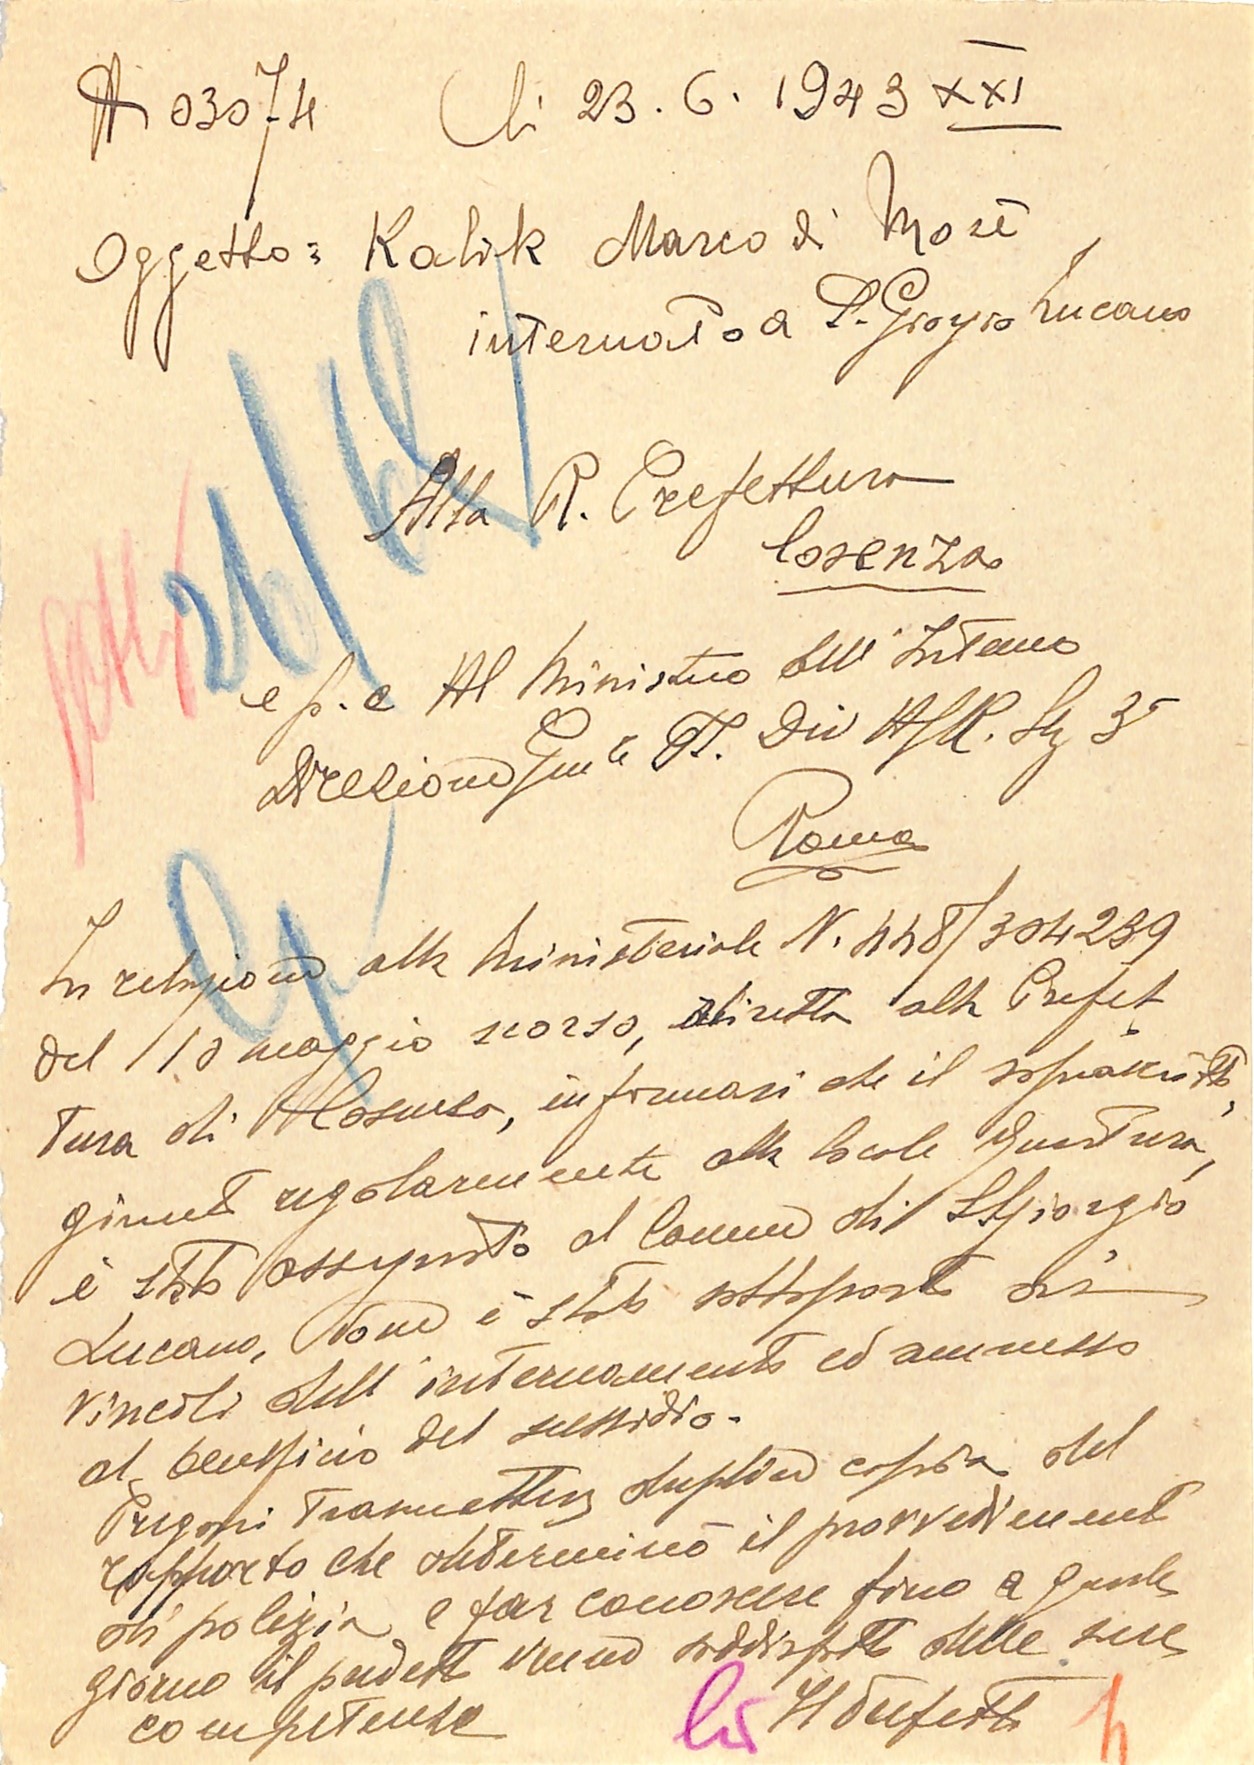 N 03074 li 23.6.1943 XXI
Oggetto: Kalik Marco di Mosè
internato a S. Giorgio Lucano
Alla R. Prefettura
Cosenza
e p.c. Al Ministero dell'Interno
Direzione Gen le Div AGR. Sez 3ª
Roma
26/6
In relazione alla Ministeriale N. 448/304239
del 10 maggio scorso, diretta alla Prefet
tura di Cosenza, informasi che il soprascritto,
giunto regolarmente alla locale Questura,
è stato assegnato al Comune di S. Giorgio
Lucano, dove è stato sottoposto ai
vincoli dell'internamento ed ammesso
al beneficio del sussidio.
Pregasi trasmettere duplice copia del
rapporto che determinò il provvedimento
di polizia e far conoscere fino a quale
giorno il predetto venne soddisfatto delle sue
competenze
Il Prefetto